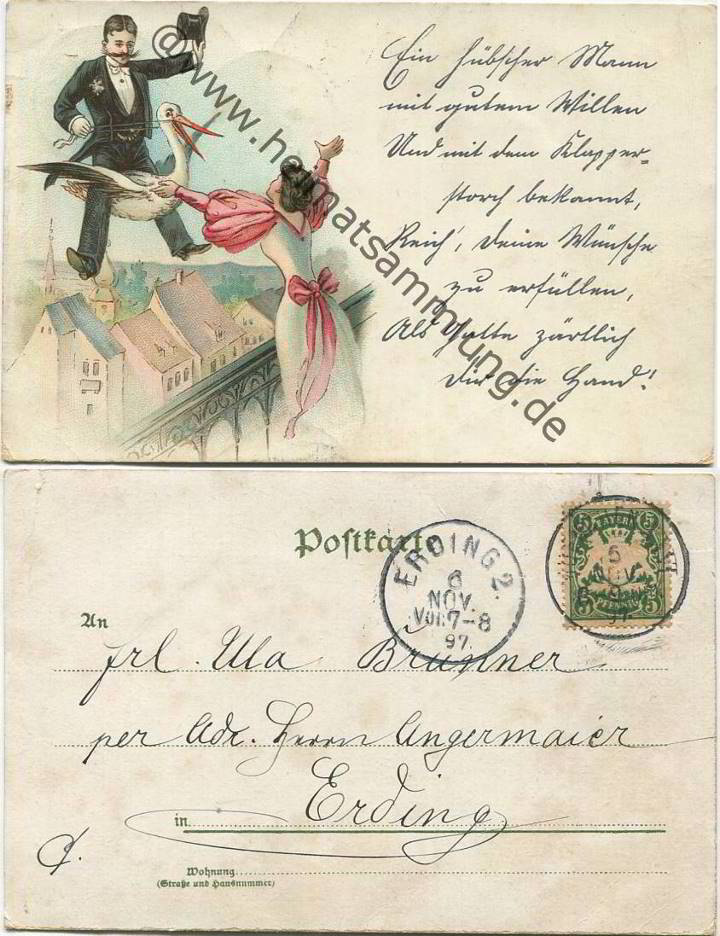 Ein hübscher Mann
mit gutem Willen
Und mit dem Klapper=
storch bekannt,
Reich', deine Wünsche
zu erfüllen,
Als Gatte zärtlich
Dir die Hand!
@www.heimatsammlung.de
Postkarte
ERDING 2.
6
NOV.
Vor.7-8
97.
BAYERN
5 5
5 5
PFENNIG
5
NOV
97
An
Frl. Ula Brunner
per Adr. Herrn Angermaier
in Erding
Wohnung
(Straße und Hausnummer)